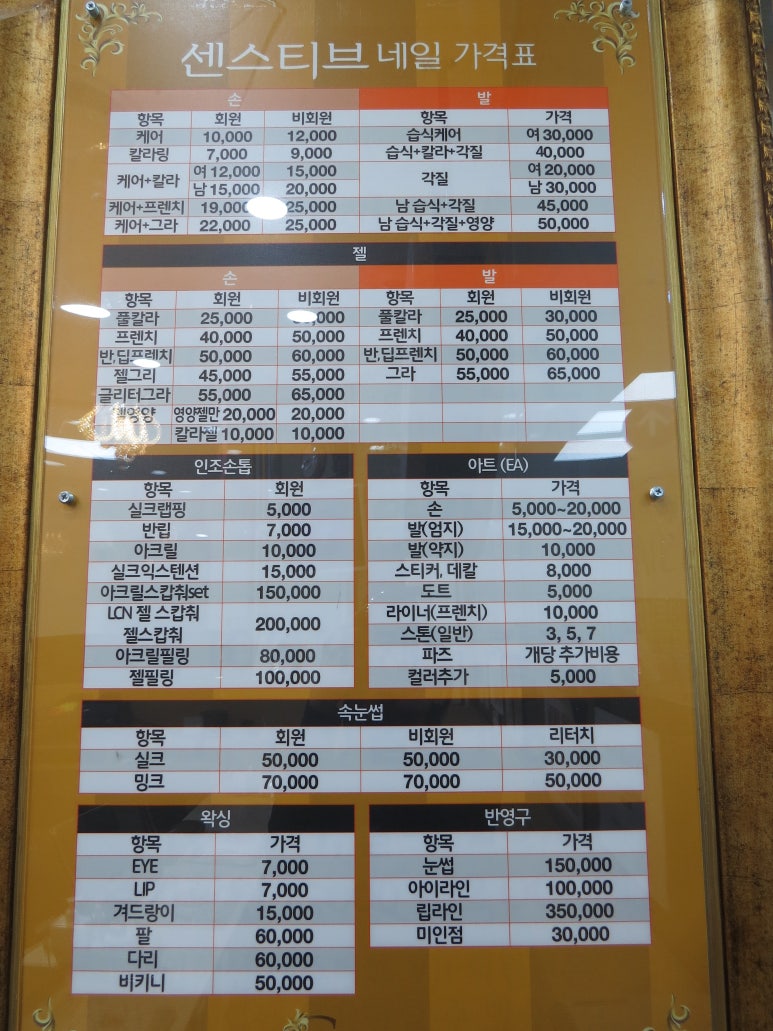 센스티브 네일 가격표
손 발
항목 회원 비회원 항목 가격
케어 10,000 12,000 습식케어 여 30,000
칼라링 7,000 9,000 습식+칼라+각질 40,000
케어+칼라 여 12,000 15,000 각질 여 20,000
남 15,000 20,000 남 30,000
케어+프렌치 19,000 25,000 남 습식+각질 45,000
케어+그라 22,000 25,000 남 습식+각질+영양 50,000
젤
손 발
항목 회원 비회원 항목 회원 비회원
풀칼라 25,000 풀칼라 25,000 30,000
프렌치 40,000 50,000 프렌치 40,000 50,000
반,딥프렌치 50,000 60,000 반,딥프렌치 50,000 60,000
젤그리 45,000 55,000 그라 55,000 65,000
글리터그라 55,000 65,000
젤영양 영양젤만 20,000 20,000
칼라젤 10,000 10,000
인조손톱 아트 (EA)
항목 회원 항목 가격
실크랩핑 5,000 손 5,000~20,000
반립 7,000 발(엄지) 15,000~20,000
아크릴 10,000 발(약지) 10,000
실크익스텐션 15,000 스티커, 데칼 8,000
아크릴스캅춰set 150,000 도트 5,000
LCN 젤 스캅춰 200,000 라이너(프렌치) 10,000
젤스캅춰 스톤(일반) 3, 5, 7
아크릴필링 80,000 파즈 개당 추가비용
젤필링 100,000 컬러추가 5,000
속눈썹
항목 회원 비회원 리터치
실크 50,000 50,000 30,000
밍크 70,000 70,000 50,000
왁싱 반영구
항목 가격 항목 가격
EYE 7,000 눈썹 150,000
LIP 7,000 아이라인 100,000
겨드랑이 15,000 립라인 350,000
팔 60,000 미인점 30,000
다리 60,000
비키니 50,000